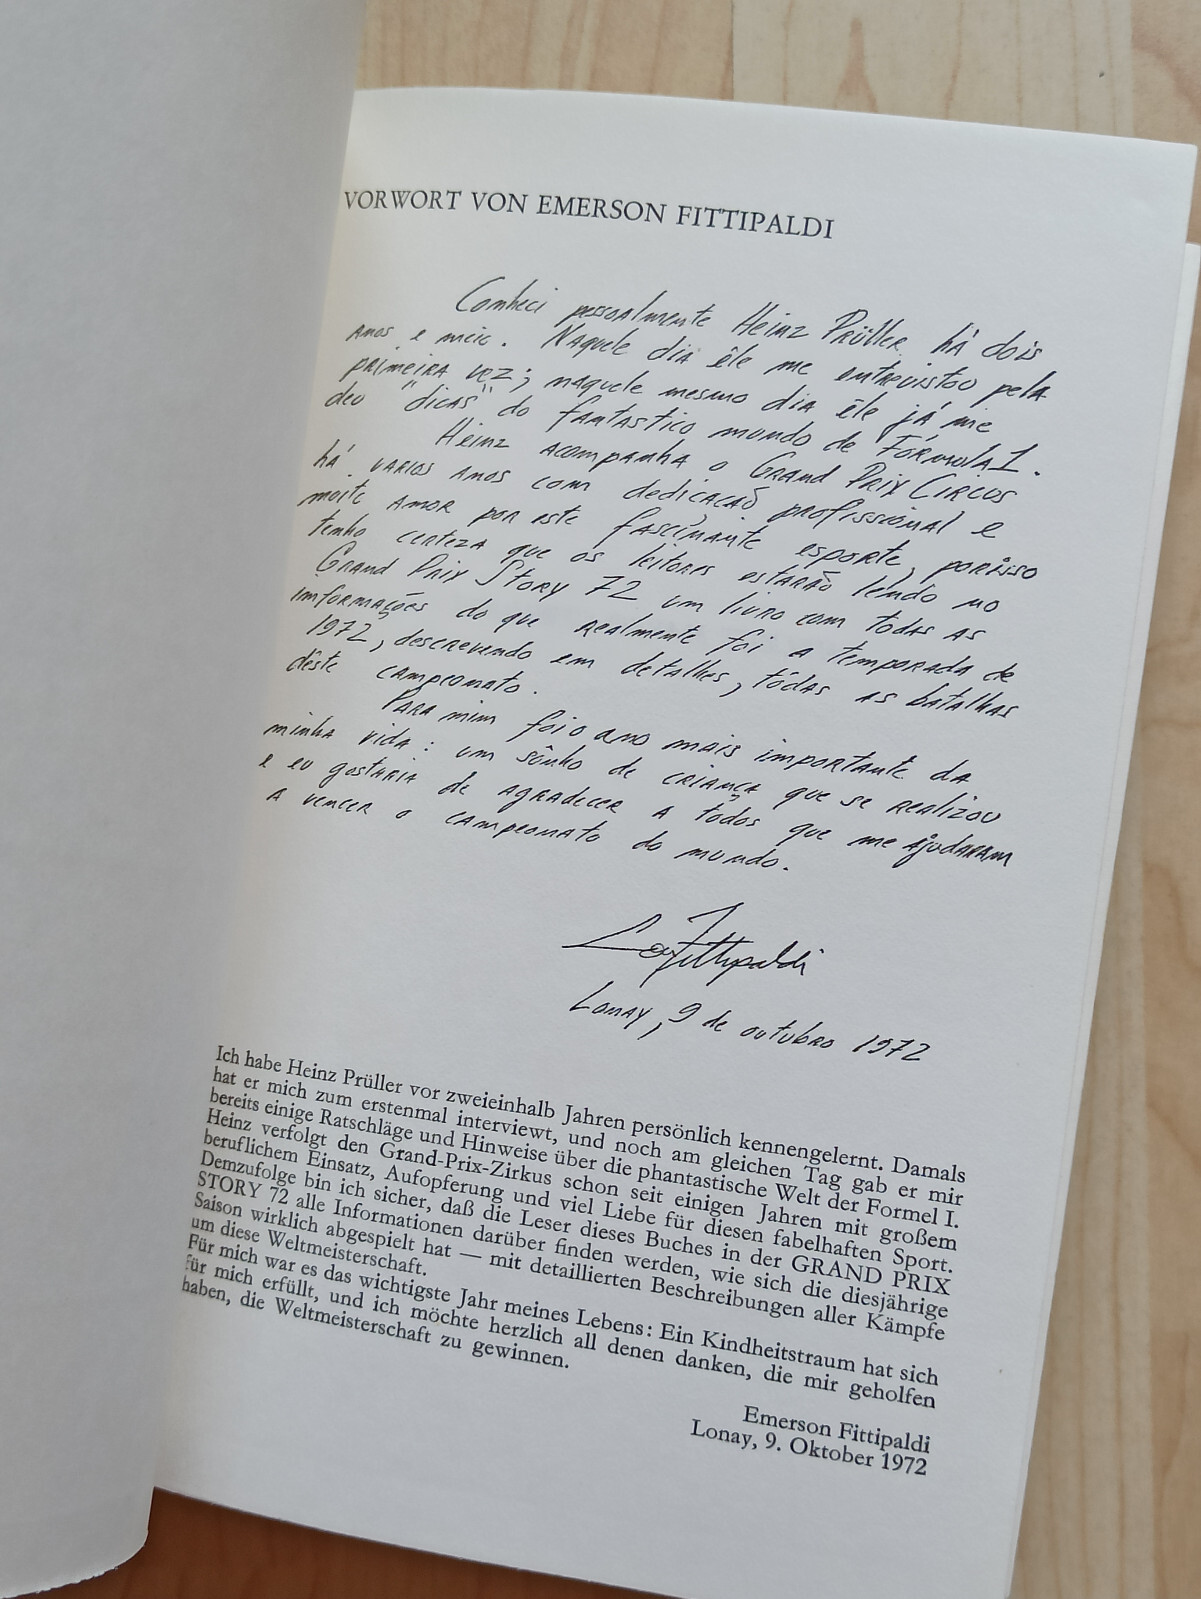 VORWORT VON EMERSON FITTIPALDI
Conheci pessoalmente Heinz Prüller há dois
anos e meio. Naquele dia êle me entrevistou pela
primeira vez; naquele mesmo dia êle já me
deu "dicas" do fantastico mundo de Fórmula 1.
Heinz acompanha o Grand Prix Circus
há varios anos com dedicação profissional e
moite amor por este fascinante esporte, porisso
tenho certeza que os leitores estarão lendo no
Grand Prix Story 72 um livro com todas as
informações do que realmente foi a temporada de
1972, descrevendo em detalhes, tôdas as batalhas
dêste campeonato.
Para mim foi o ano mais importante da
minha vida: um sônho de criança que se realizou
e eu gostaria de agradecer a todos que me ajudaram
a vencer o campeonato do mundo.
Fittipaldi
Lonay, 9 de outubro 1972
Ich habe Heinz Prüller vor zweieinhalb Jahren persönlich kennengelernt. Damals
hat er mich zum erstenmal interviewt, und noch am gleichen Tag gab er mir
bereits einige Ratschläge und Hinweise über die phantastische Welt der Formel I.
Heinz verfolgt den Grand-Prix-Zirkus schon seit einigen Jahren mit großem
beruflichem Einsatz, Aufopferung und viel Liebe für diesen fabelhaften Sport.
Demzufolge bin ich sicher, daß die Leser dieses Buches in der GRAND PRIX
STORY 72 alle Informationen darüber finden werden, wie sich die diesjährige
Saison wirklich abgespielt hat — mit detaillierten Beschreibungen aller Kämpfe
um diese Weltmeisterschaft.
Für mich war es das wichtigste Jahr meines Lebens: Ein Kindheitstraum hat sich
für mich erfüllt, und ich möchte herzlich all denen danken, die mir geholfen
haben, die Weltmeisterschaft zu gewinnen.
Emerson Fittipaldi
Lonay, 9. Oktober 1972